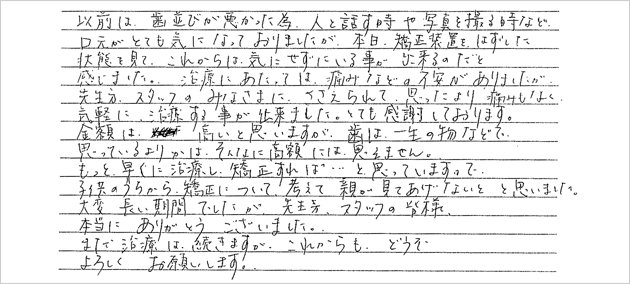 以前は、歯並びが悪かった為、人と話す時や写真を撮る時など、
口元がとても気になっておりましたが、本日、矯正装置をはずした
状態を見て、これからは、気にせずにいる事が出来るのだと
感じました。 治療にあたっては、痛みなどの不安がありましたが、
先生方、スタッフのみなさまに、ささえられて、思ったより痛みもなく、
気軽に、治療する事が出来ました。とても感謝しております。
金額は、高いと思いますが、歯は、一生の物なので、
思っているよりかは、そんなに高額には、思えません。
もっと、早くに治療し、矯正すれば…と思っていますので、
子供のうちから、矯正について、考えて 親が見てあげないと と思いました。
大変 長い期間でしたが 先生方、スタッフの皆様、
本当に ありがとう ございました。
まだ治療は、続きますが、これからも、どうぞ
よろしく お願いします。